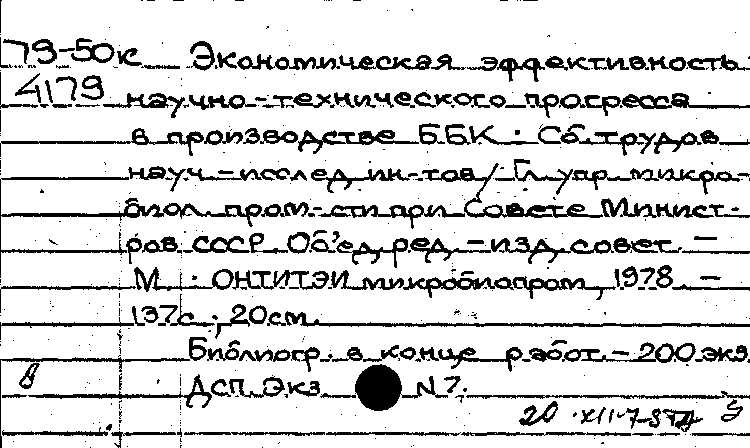 79-50к Экономическая эффективность
4179 научно-технического прогресса
в производстве ББК : Сб. трудов
науч.-исслед. ин-тов / Гл. упр. микро-
биол. пром-сти при Совете Минист-
ров СССР. Об'ед. ред.-изд. совет. –
М. : ОНТИТЭИ микробиопром, 1978. –
137с ; 20см.
Библиогр. в конце работ. – 200 экз.
ДСП. Экз. N 7.